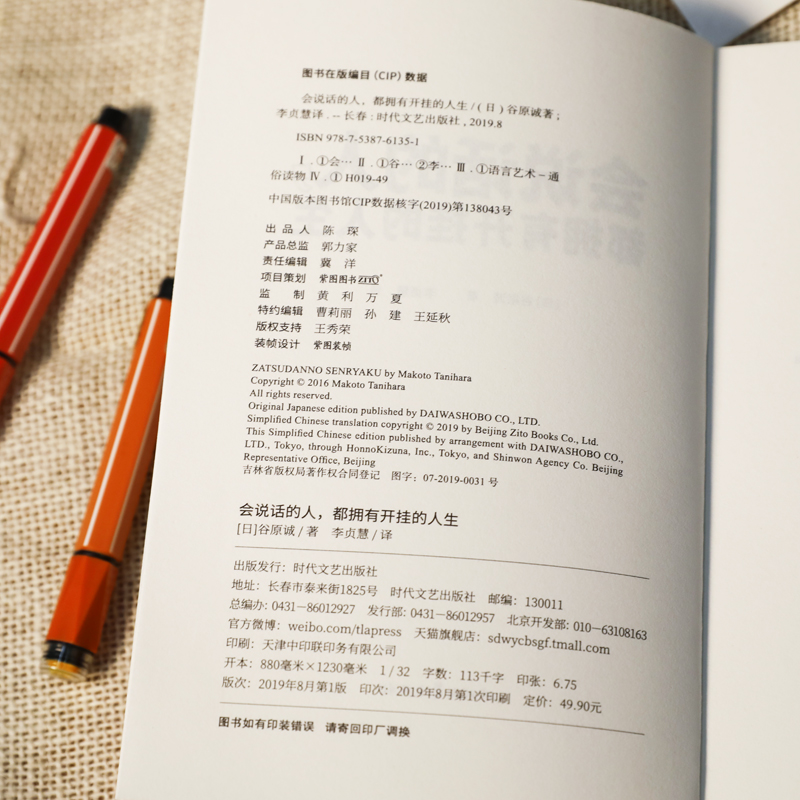 图书在版编目（CIP）数据
会说话的人，都拥有开挂的人生/（日）谷原诚著；
李贞慧译. -- 长春：时代文艺出版社，2019.8
ISBN 978-7-5387-6135-1
Ⅰ. ①会… Ⅱ. ①谷… ②李… Ⅲ. ①语言艺术－通
俗读物 Ⅳ. ① H019-49
中国版本图书馆CIP数据核字(2019)第138043号
出 品 人 陈 琛
产品总监 郭力家
责任编辑 冀 洋
项目策划 紫图图书ZITO®
监 制 黄 利 万 夏
特约编辑 曹莉丽 孙 建 王延秋
版权支持 王秀荣
装帧设计 紫图装帧
ZATSUDANNO SENRYAKU by Makoto Tanihara
Copyright © 2016 Makoto Tanihara
All rights reserved.
Original Japanese edition published by DAIWASHOBO CO., LTD.
Simplified Chinese translation copyright © 2019 by Beijing Zito Books Co., Ltd.
This Simplified Chinese edition published by arrangement with DAIWASHOBO CO.,
LTD., Tokyo, through HonnoKizuna, Inc., Tokyo, and Shinwon Agency Co. Beijing
Representative Office, Beijing
吉林省版权局著作权合同登记 图字：07-2019-0031 号
会说话的人，都拥有开挂的人生
[日]谷原诚/著 李贞慧/译
出版发行：时代文艺出版社
地址：长春市泰来街1825号 时代文艺出版社 邮编：130011
总编办：0431-86012927 发行部：0431-86012957 北京开发部：010-63108163
官方微博：weibo.com/tlapress 天猫旗舰店：sdwycbsgf.tmall.com
印刷：天津中印联印务有限公司
开本：880毫米×1230毫米 1/32 字数：113千字 印张：6.75
版次：2019年8月第1版 印次：2019年8月第1次印刷 定价：49.90元
图书如有印装错误 请寄回印厂调换